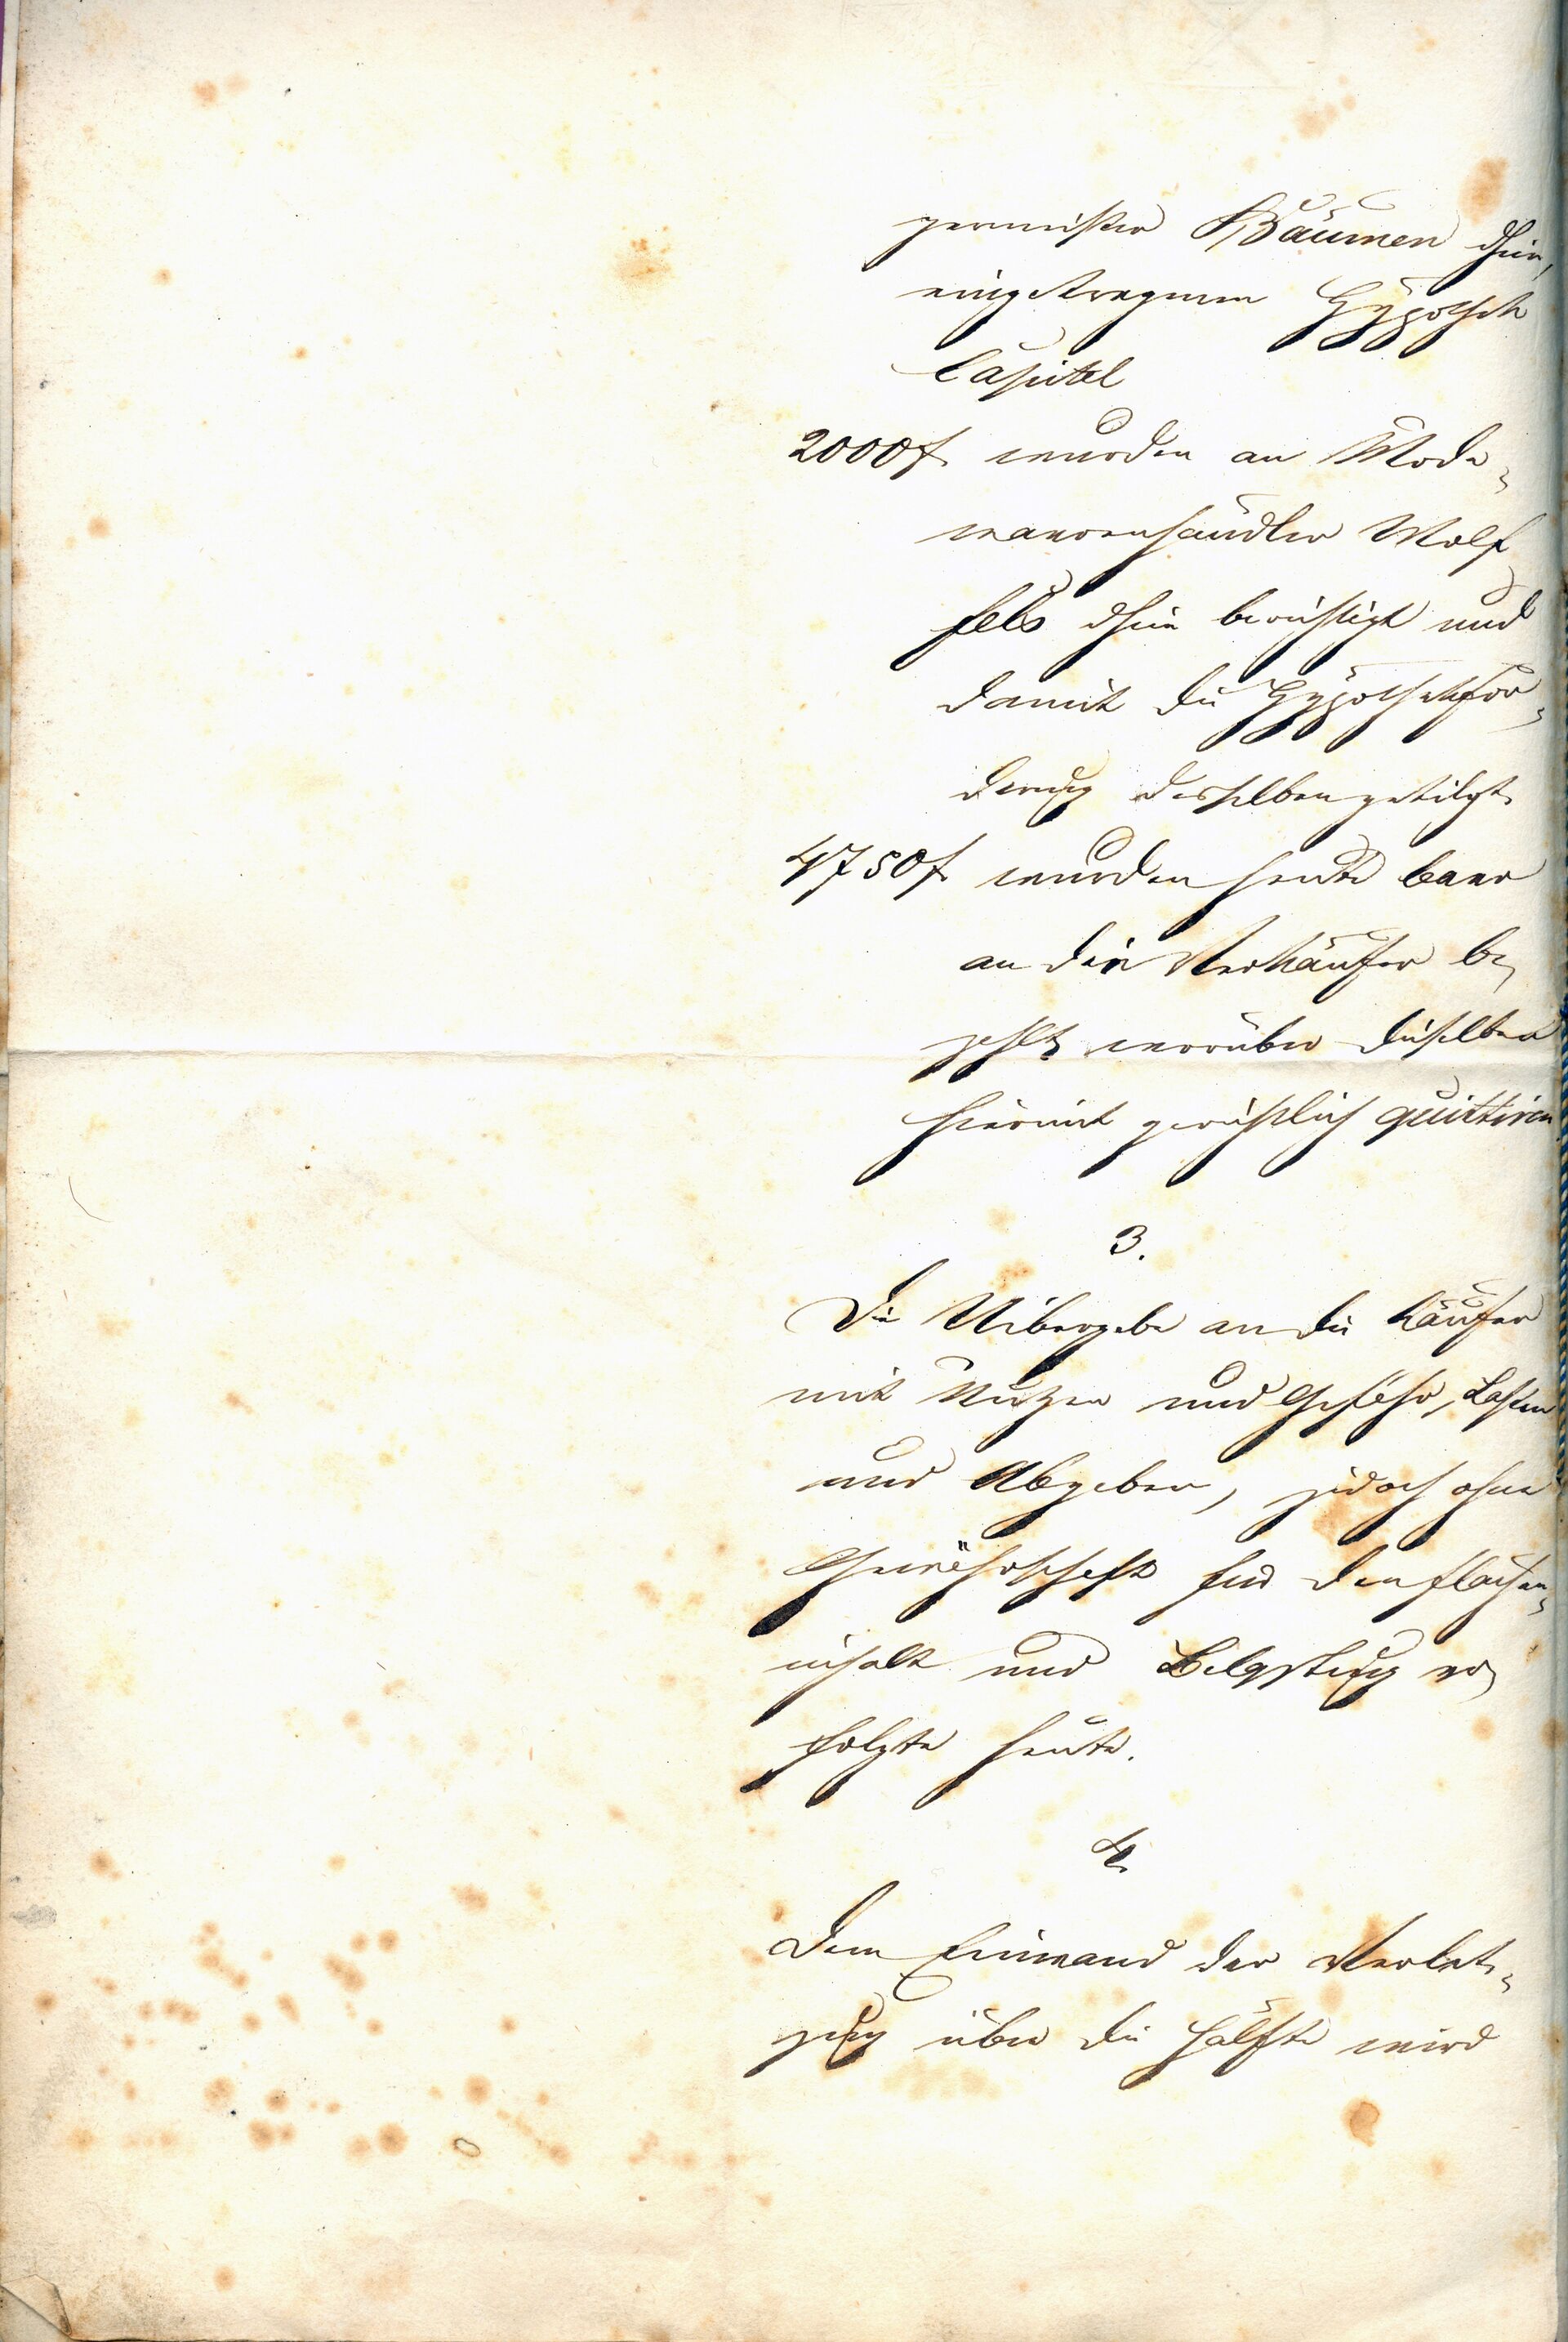 germeister Bäumen dhier,
eingetragenen Hypothek
Capital
2000 f wurden an Mode-
waarenhändler Wolf
fels dhier berichtigt und
damit die Hypothekfor-
derung desselben getilgt.
4750 f wurden heute baar
an die Verkäufer be-
zahlt worüber dieselben
hiermit gerichtlich quittiren
3.
Die Uibergabe an die Käufer
mit Nutzen und Gefahr, Lasten
und Abgaben, jedoch ohne
Gewährschaft für den Flächen-
inhalt und Belastung er-
folgte heute.
4.
Dem Einwand der Verlet-
zung über die Hälfte wird